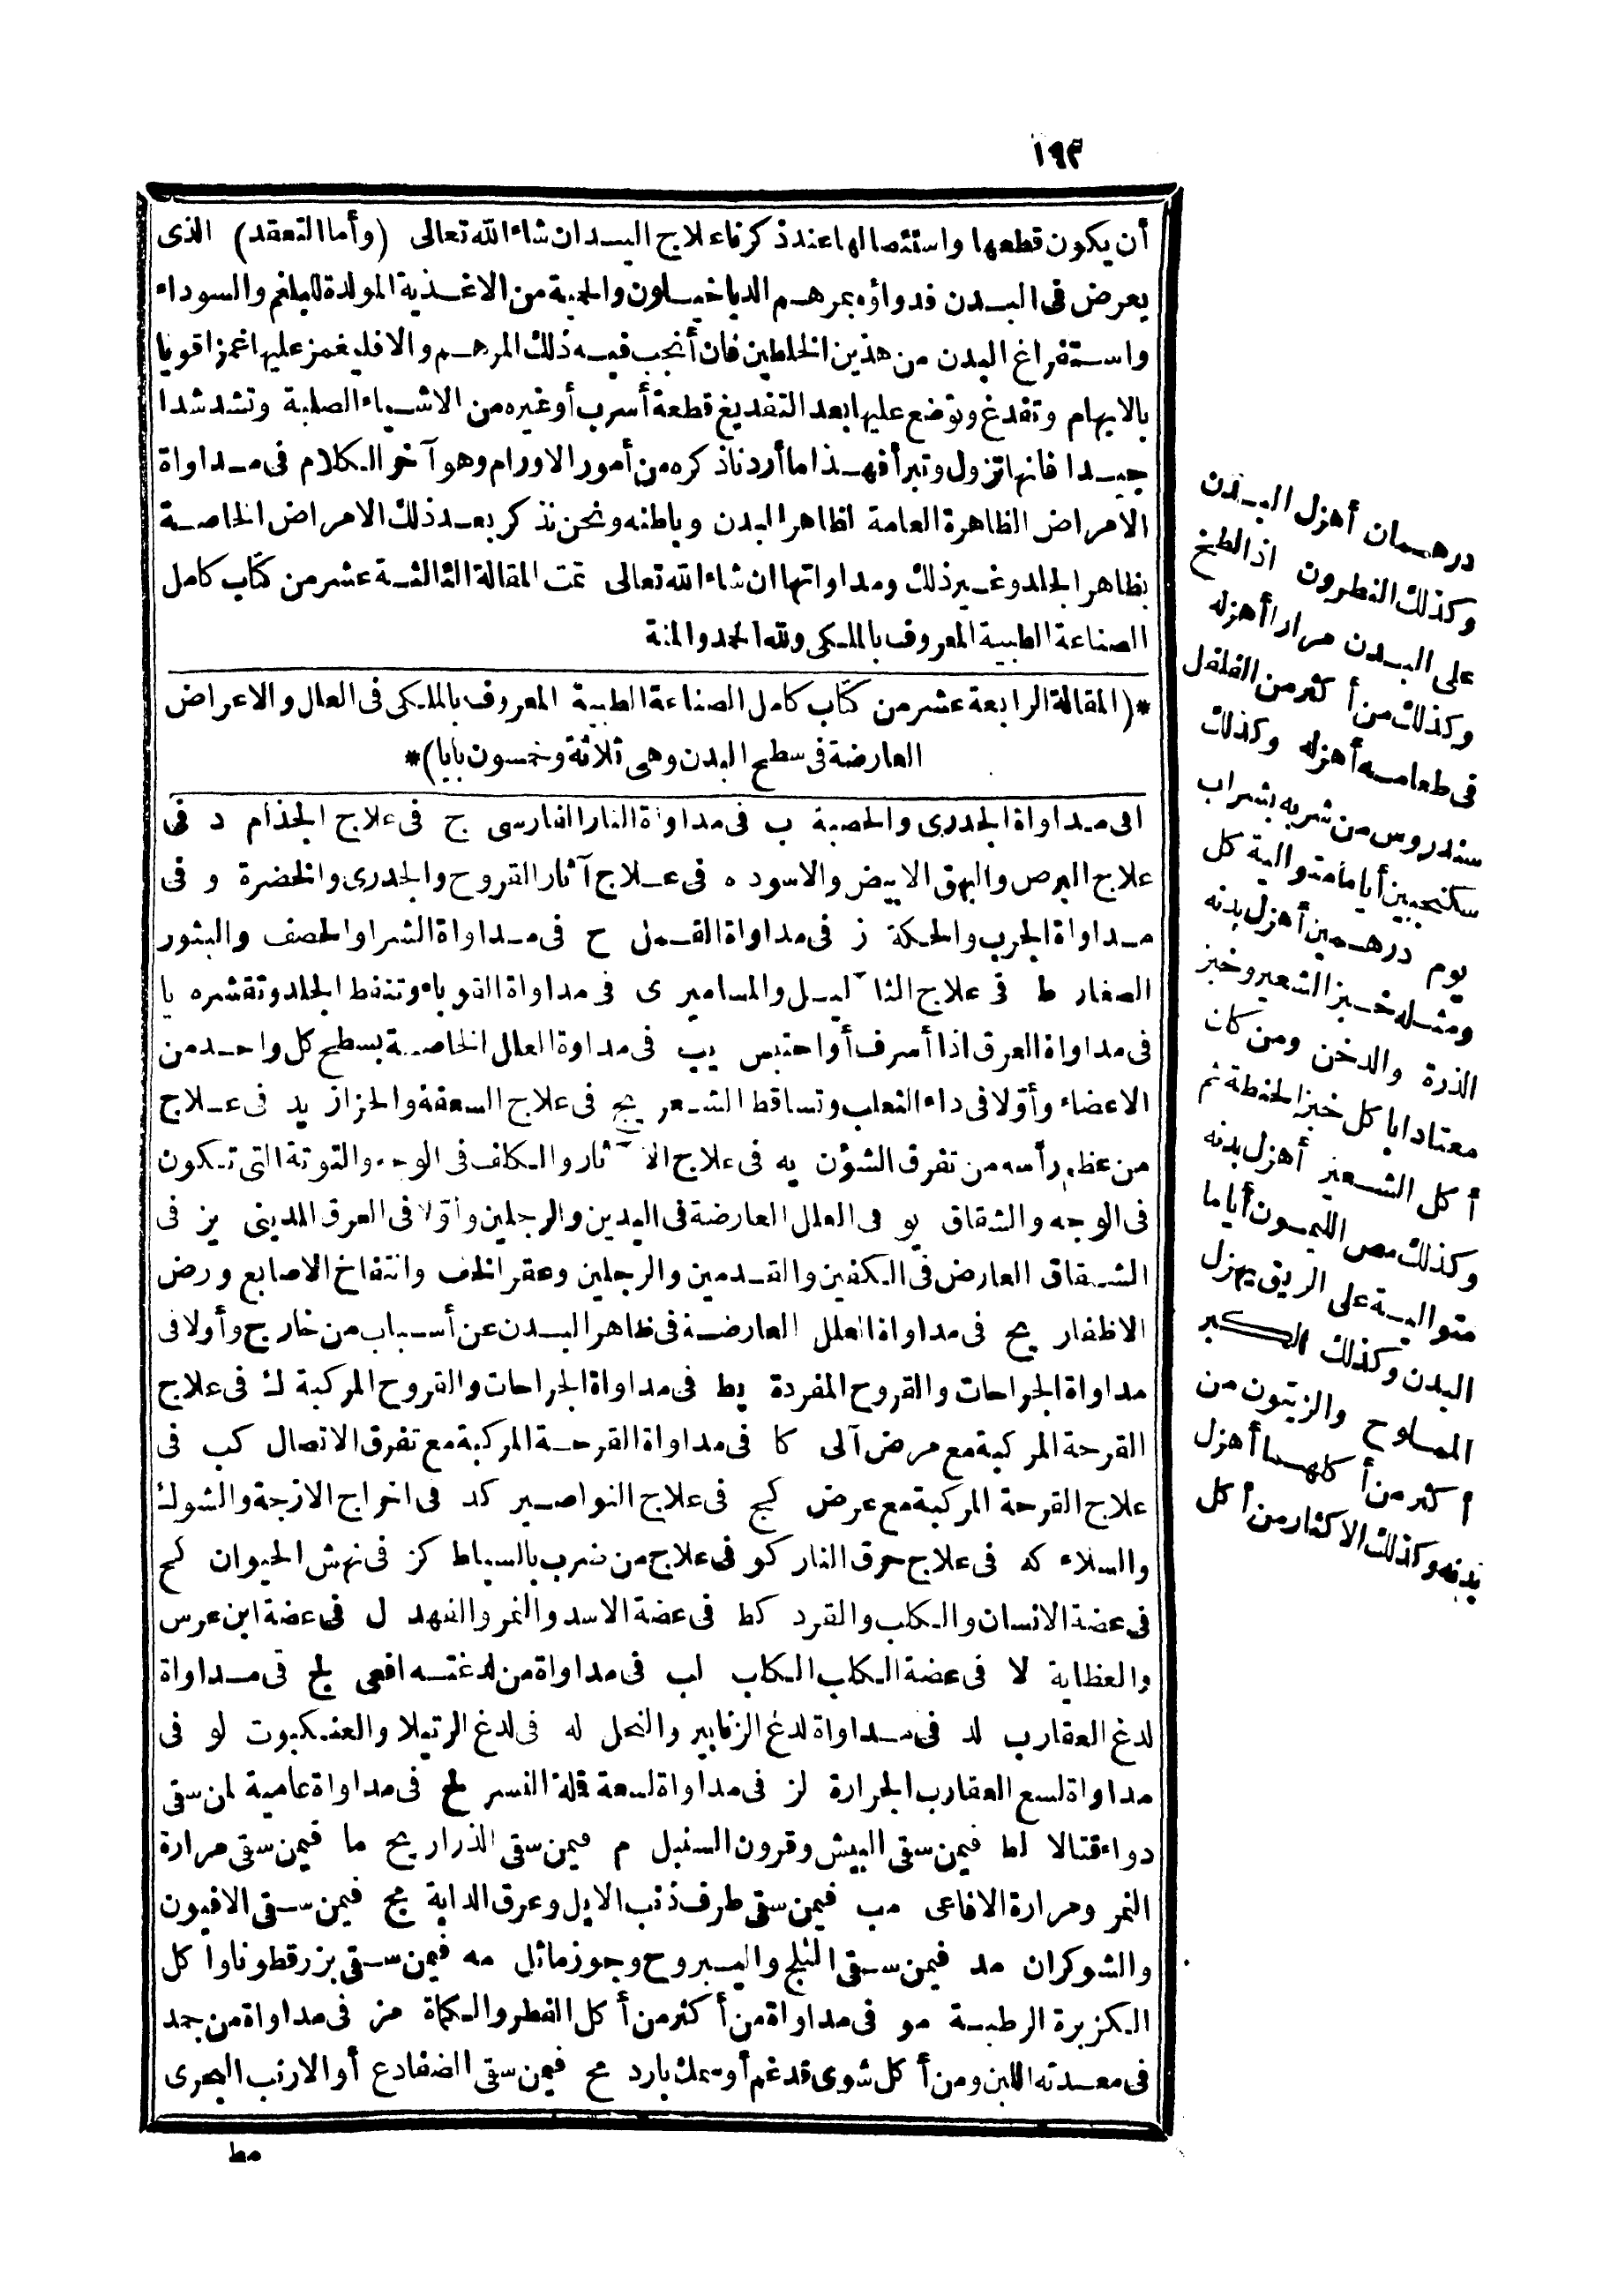 ١٩٣
أن يكون قطعها واستئصالها عند ذكرنا علاج اليد ان شاء الله تعالى (وأما التعقد) الذى
يعرض فى البدن فدواؤه بمرهم الدياخيلون والحمية من الاغذية المولدة للبلغم والسوداء
واستفراغ البدن من هذين الخلطين فان أنجب فيه ذلك المرهم والا فليغمز عليها غمزا قويا
بالابهام وتفدغ ويوضع عليها بعد التفديغ قطعة أسرب أو غيره من الاشياء الصلبة وتشد شدا
جيدا فانها تزول وتبرأ فهذا ما أردنا ذكره من أمور الاورام وهو آخر الكلام فى مداواة
الامراض الظاهرة العامة لظاهر البدن وباطنه ونحن نذكر بعد ذلك الامراض الخاصة
بظاهر الجلد وغير ذلك ومداواتها ان شاء الله تعالى تمت المقالة الثالثة عشر من كتاب كامل
الصناعة الطبية المعروف بالملكى ولله الحمد والمنة
*(المقالة الرابعة عشر من كتاب كامل الصناعة الطبية المعروف بالملكى فى العلل والاعراض
العارضة فى سطح البدن وهى ثلاثة وخمسون بابا)*
ا فى مداواة الجدرى والحصبة ب فى مداواة النار الفارسى ج فى علاج الجذام د فى
علاج البرص والبهق الابيض والاسود ه فى علاج آثار القروح والجدرى والخضرة و فى
مداواة الجرب والحكة ز فى مداواة القمل ح فى مداواة الشرا والحصف والبثور
الصغار ط فى علاج الثآليل والمسامير ى فى مداواة القوباء وتنفط الجلد وتقشره يا
فى مداواة العرق اذا أسرف أو احتبس يب فى مداوة العلل الخاصة بسطح كل واحد من
الاعضاء وأولا فى داء الثعلب وتساقط الشعر يج فى علاج السعفة والحزاز يد فى علاج
من عظم رأسه من تفرق الشؤن يه فى علاج الآثار والكلف فى الوجه والتوتة التى تكون
فى الوجه والشقاق يو فى العلل العارضة فى اليدين والرجلين وأولا فى العرق المدينى يز فى
الشقاق العارض فى الكفين والقدمين والرجلين وعقر الخف وانتفاخ الاصابع ورض
الاظفار يح فى مداواة العلل العارضة فى ظاهر البدن عن أسباب من خارج وأولا فى
مداواة الجراحات والقروح المفردة يط فى مداواة الجراحات والقروح المركبة ك فى علاج
القرحة المركبة مع مرض آلى كا فى مداواة القرحة المركبة مع تفرق الاتصال كب فى
علاج القرحة المركبة مع عرض كج فى علاج النواصير كد فى اخراج الازجة والشوك
والسلاء كه فى علاج حرق النار كو فى علاج من ضرب بالسياط كز فى نهش الحيوان كح
فى عضة الانسان والكلب والقرد كط فى عضة الاسد والنمر والفهد ل فى عضة ابن عرس
والعظاية لا فى عضة الكلب الكلب لب فى مداواة من لدغته افعى لج فى مداواة
لدغ العقارب لد فى مداواة لدغ الزنابير والنحل له فى لدغ الرتيلا والعنكبوت لو فى
مداواة لسع العقارب الجرارة لز فى مداواة لسعة قملة النسر لح فى مداواة عامية لمن سقى
دواء قتالا لط فيمن سقى البيش وقرون السنبل م فيمن سقى الذراريح ما فيمن سقى مرارة
النمر ومرارة الافاعى مب فيمن سقى طرف ذنب الايل وعرق الدابة مج فيمن سقى الافيون
والشوكران مد فيمن سقى البنج واليبروح وجوز ماثل مه فيمن سقى بزرقطونا وأكل
الكزبرة الرطبة مو فى مداواة من أكثر من أكل الفطر والكماة مز فى مداواة من جمد
فى معدته اللبن ومن أكل شوى قد غم أو سمك بارد مح فيمن سقى الضفادع أو الارنب البحرى
مط
درهمان أهزل البدن
وكذلك النطرون اذا لطخ
على البدن مرارا أهزله
وكذلك من أكثر من الفلفل
فى طعامه أهزله وكذلك
سندروس من شربه بشراب
سكنجبين أياما متوالية كل
يوم درهمين أهزل بدنه
ومثله خبز الشعير وخبز
الذرة والدخن ومن كان
معتادا باكل خبز الحنطة ثم
أكل الشعير أهزل بدنه
وكذلك مص الليمون أياما
متوالية على الريق يهزل
البدن وكذلك الكبر
المملوح والزيتون من
أكثر من أكلهما أهزل
بدنه وكذلك الاكثار من أكل